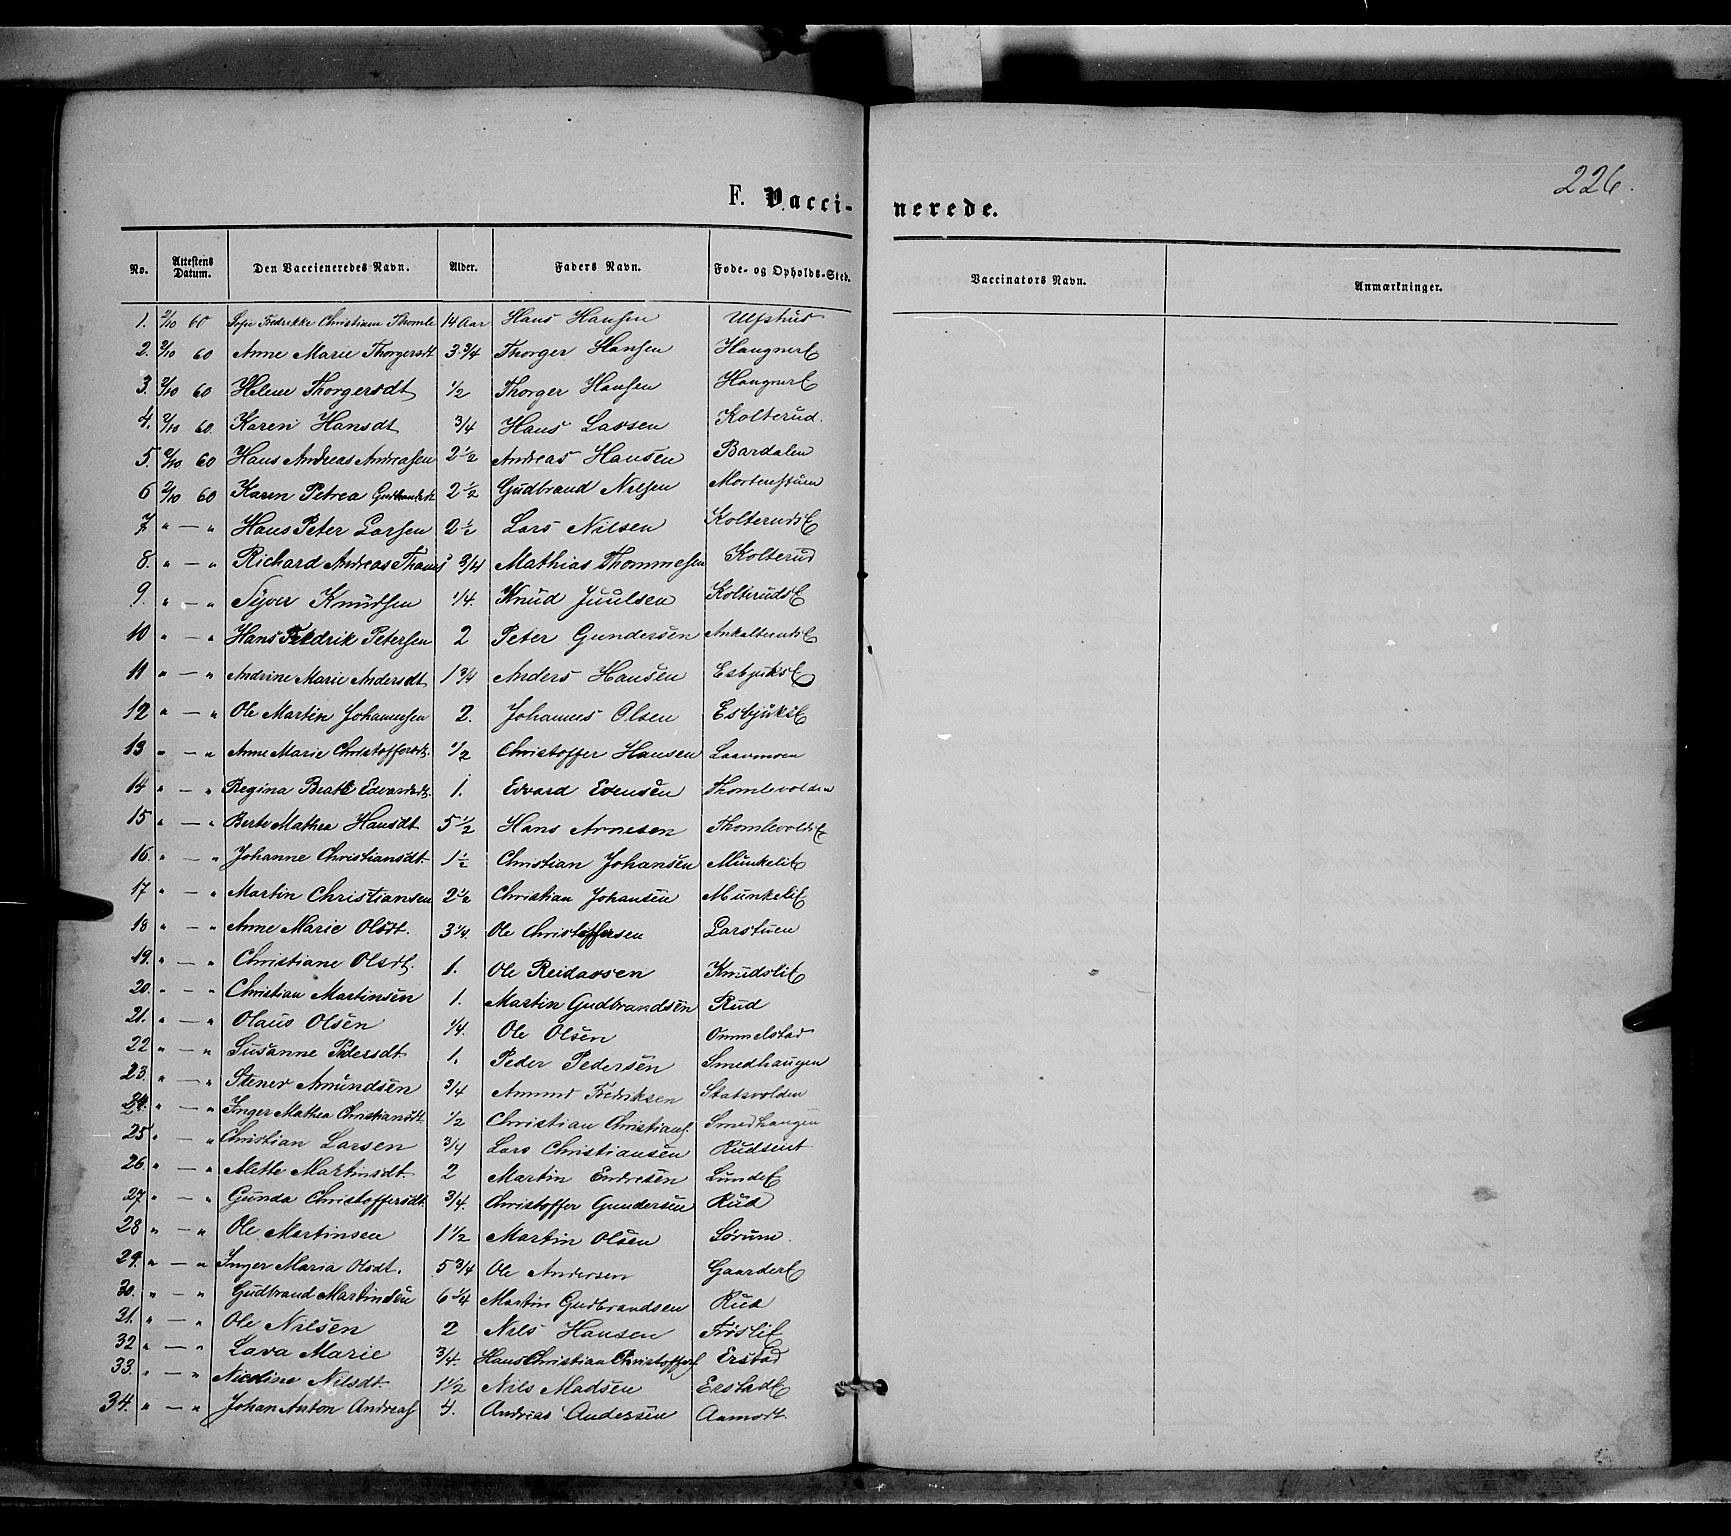 226.
F. Vacci- nerede.
No. Attestens Datum. Den Vaccieneredes Navn. Alder. Faders Navn. Føde- og Opholds-Sted. Vaccinators Navn. Anmærkninger.
1. 2/10 60 Fredrikke Christiane Thomle 14 Aar Hans Hansen Ulfshus
2. 2/10 60 Anne Marie Thorgersdt 3 3/4 Thorger Hansen HaugnerE
3. 2/10 60 Helene Thorgersdt 1/2 Thorger Hansen HaugnerE
4. 2/10 60. Karen Hansdt 3/4 Hans Larsen Kolterud.
5. 2/10 60 Hans Andreas Andreasen 2 1/2 Andreas Hansen Bardalen
6 2/10 60 Karen Petrea Gudbrandsdt 2 1/2 Gudbrand Nilsen Mortenstuen
7. " — " Hans Peter Larsen 2 1/2 Lars Nilsen KolterudsE
8. " — " Richard Andreas 3/4 Mathias Thommesen Kolterud
9. " — " Syver Knudsen 1/4. Knud Juulsen KolterudsE
10 " — " Hans Fredrik Petersen 2 Peter Gundersen
11 " — " Andrine Marie Andersdt 1 3/4 Anders Hansen EsbjuksE
12 " — " Ole Martin Johannesen 2. Johannes Olsen EsbjuksE
13 " — " Anne Marie Christoffersdt. 1/2 Christoffer Hansen Laavmoen
14 " — " Regina Beate Edvardsdt. 1. Edvard Evensen Thomlevolden
15 " — " Berte Mathea Hansdt 5 1/2 Hans Arnesen ThomlevoldsE
16. " — " Johanne Christiansdt. 1 1/2 Christian Johansen MunkeliE
17 " — " Martin Christiansen 2 1/2 Christian Johansen MunkeliE
18 " — " Anne Marie Olsdt. 3 1/4. Ole Christoffersen Larstuen
19. " — " Christiane Olsdt. 1. Ole Reidarsen KnudsliE
20. " — " Christian Martinsen 1. Martin Gudbrandsen Rud
21. " — " Olaus Olsen 1/4. Ole Olsen Ommelstad
22 " — " Susanne Pedersdt 1. Peder Pedersen Smedhaugen
23. " — " Stener Amundsen 3/4 Amund Fredriksen Statsvolden
24. " — " Inger Mathea Christiansdt 1/2 Christian Christians. Smedhaugen
25 " — " Christian Larsen 3/4 Lars Christiansen Rudseiet
26. " — " Mette Martinsdt. 2 Martin Endresen LundeE
27 " — " Gunda Christoffersdt. 3/4. Christoffer Gundersen Rud
28 " — " Ole Martinsen 1 1/2 Martin Olsen Sørum.
29. " — " Inger Maria Olsdt. 5 3/4 Ole Andersen GaarderE
30. " — " Gudbrand Martinsen 6 1/4 Martin Gudbrandsen Rud
31. " — " Ole Nilsen 2 Nils Hansen FrøsliE
32 " — " Lava Marie 3/4. Hans Christian Christoffers Erstad
33. " — " Nicoline Nilsdt. 1 1/2 Nils Madsen ErstadE
34. " — " Johan Anton Andreas 4. Andreas Andersen Aamodt.